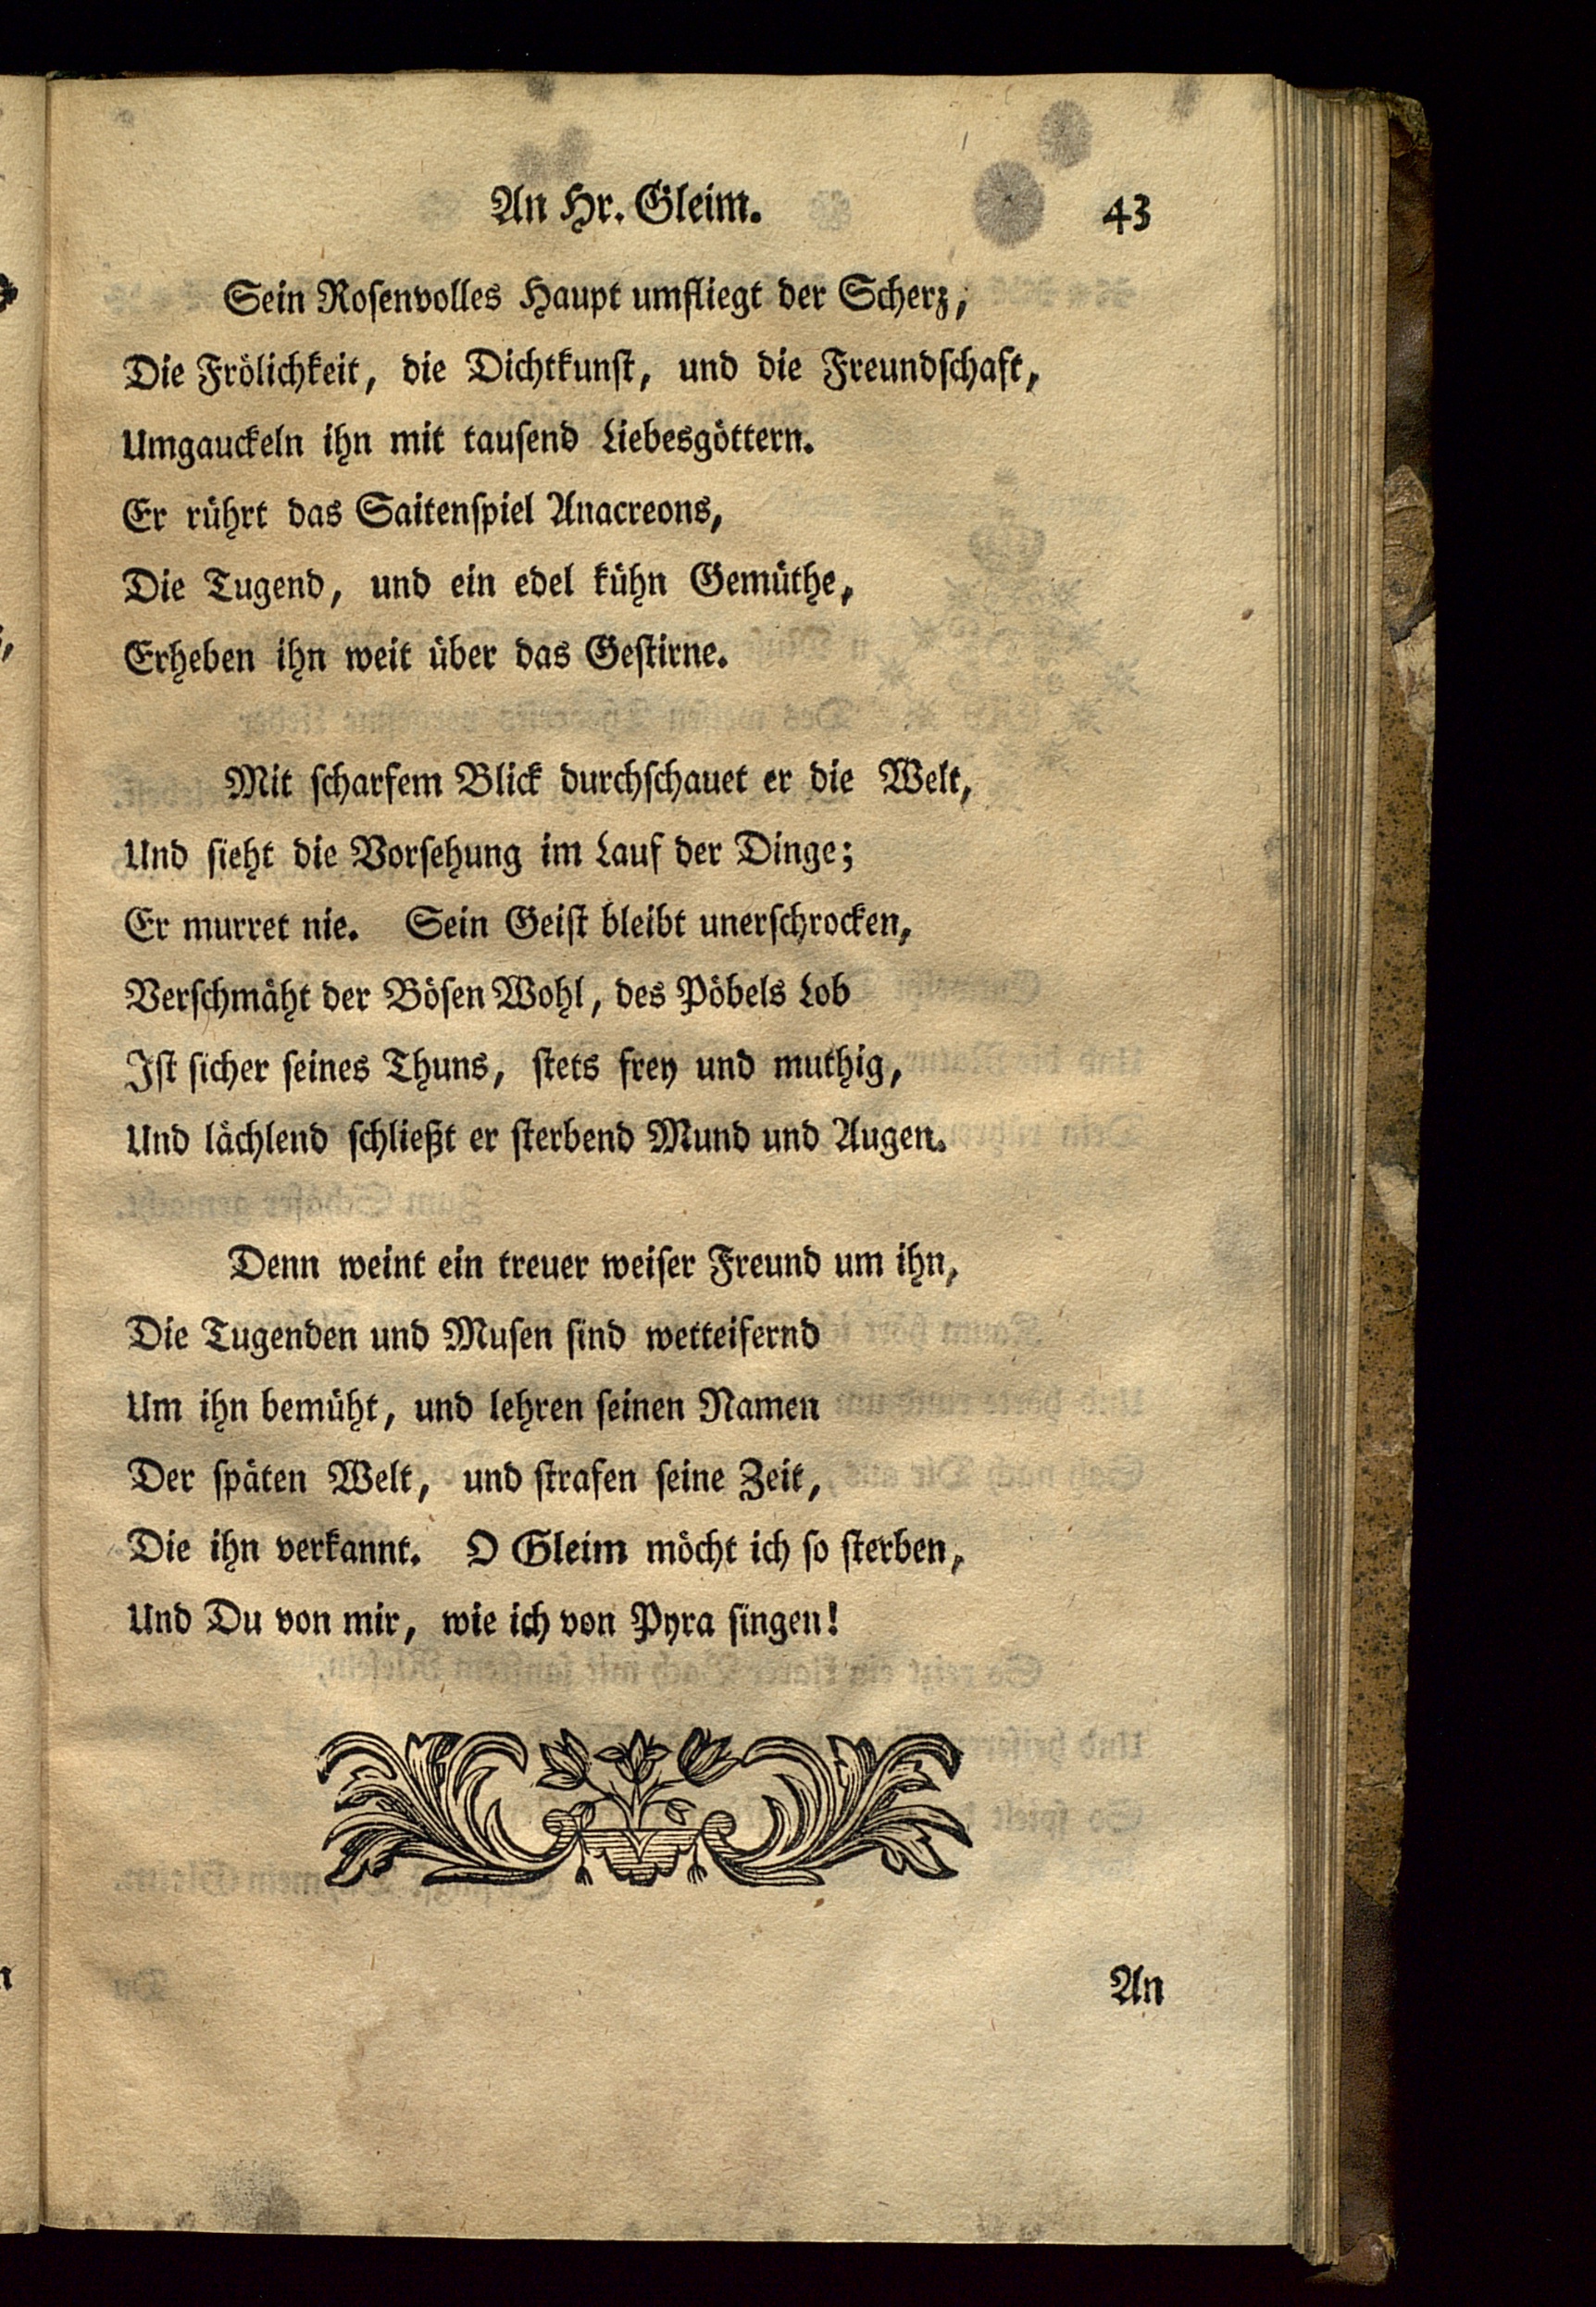 An Hr. Gleim. 43
Sein Rosenvolles Haupt umfliegt der Scherz,
Die Frölichkeit, die Dichtkunst, und die Freundschaft,
Umgauckeln ihn mit tausend Liebesgöttern.
Er rührt das Saitenspiel Anacreons,
Die Tugend, und ein edel kühn Gemüthe,
Erheben ihn weit über das Gestirne.
Mit scharfem Blick durchschauet er die Welt,
Und sieht die Vorsehung im Lauf der Dinge;
Er murret nie. Sein Geist bleibt unerschrocken,
Verschmäht der Bösen Wohl, des Pöbels Lob
Ist sicher seines Thuns, stets frey und muthig,
Und lächlend schließt er sterbend Mund und Augen.
Denn weint ein treuer weiser Freund um ihn,
Die Tugenden und Musen sind wetteifernd
Um ihn bemüht, und lehren seinen Namen
Der späten Welt, und strafen seine Zeit,
Die ihn verkannt. O Gleim möcht ich so sterben,
Und Du von mir, wie ich von Pyra singen!
An